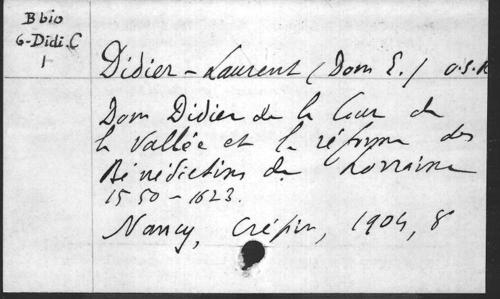 B bio
6-Didi.C
1
Didier-Laurent (Dom E.) O.S.B
Dom Didier de la Cour de
la Vallée et la réforme des
Bénédictins de Lorraine
1550-1623.
Nancy, Crépin, 1904, 8°